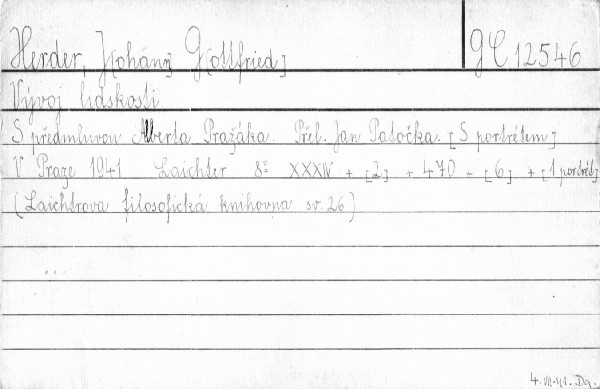 Herder, J[ohann] G[ottfried] gC 12546
Vývoj lidskosti
S předmluvou Alberta Pražáka. Přel. Jan Patočka. [S portrétem]
V Praze 1941 Laichter 8° XXXIV + [2] + 470 + [6] + [1 portrét]
(Laichtrova filosofická knihovna sv. 26)
...